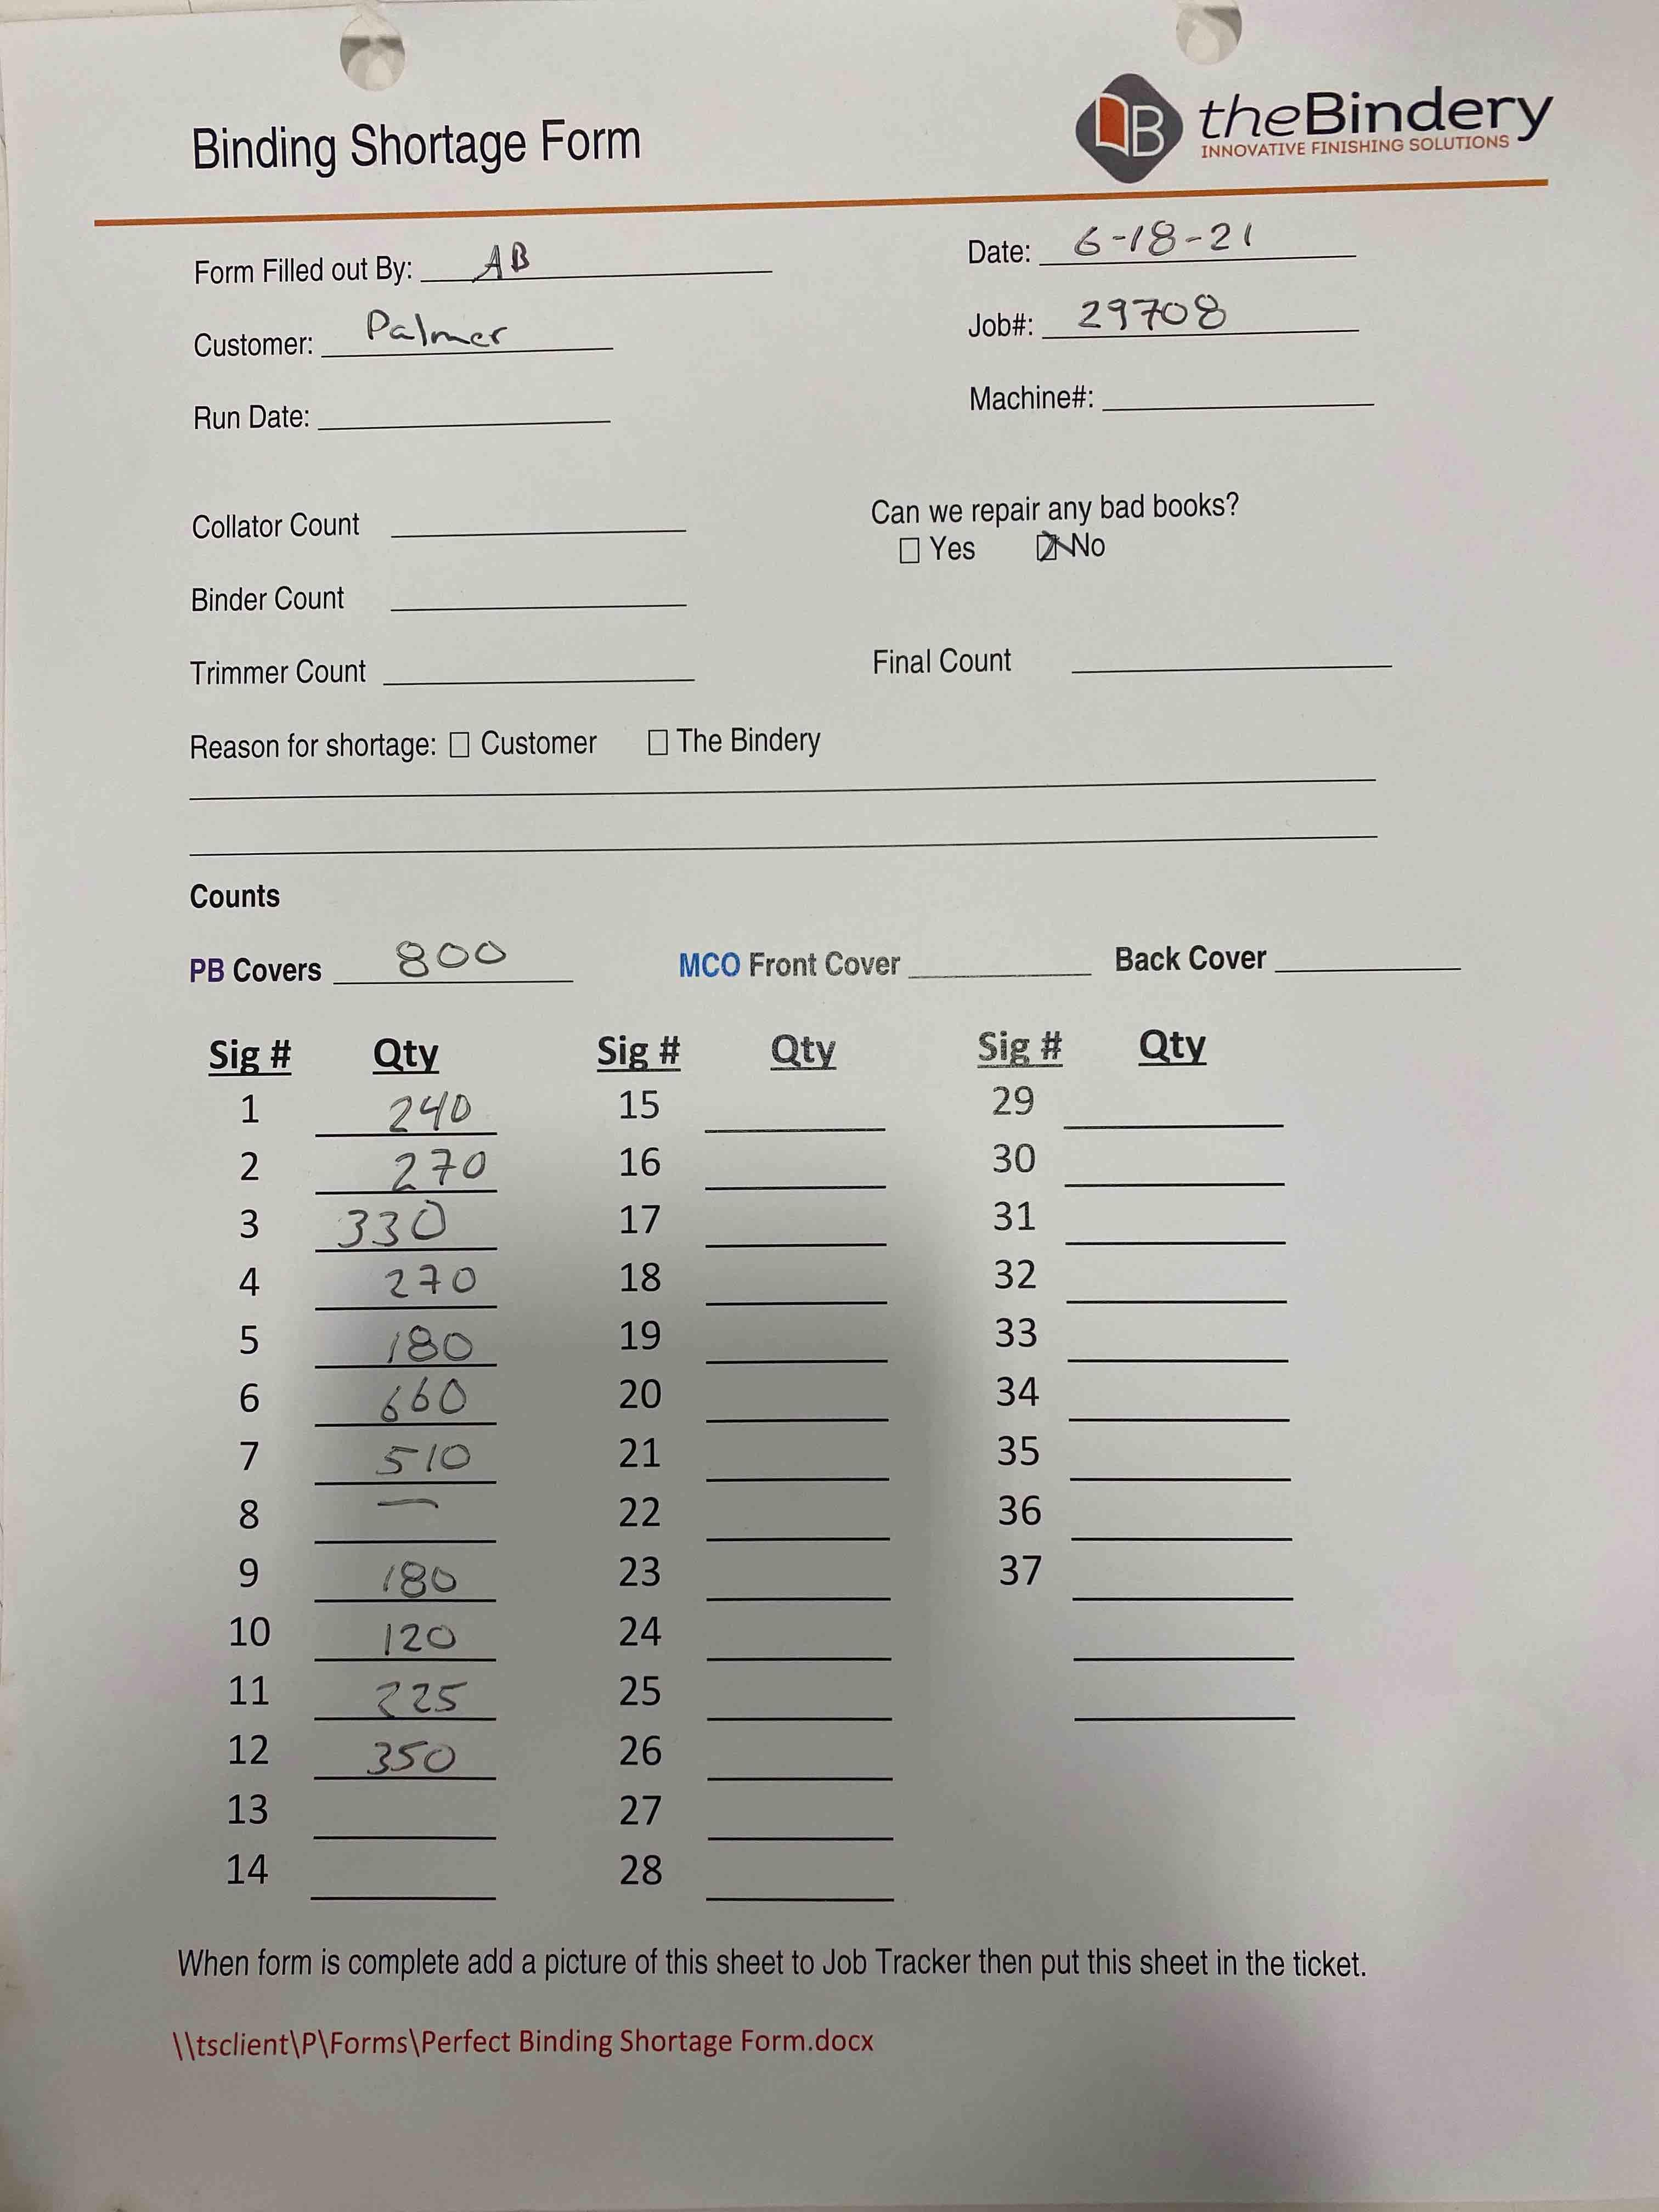 Binding Shortage Form
theBindery
INNOVATIVE FINISHING SOLUTIONS
Form Filled out By: AB
Date: 6-18-21
Customer: Palmer
Job#: 29708
Run Date:
Machine#:
Collator Count
Can we repair any bad books?
Yes No
Binder Count
Trimmer Count
Final Count
Reason for shortage: Customer The Bindery
Counts
PB Covers 800 MCO Front Cover Back Cover
Sig # Qty Sig # Qty Sig # Qty
1 240 15 29
2 270 16 30
3 330 17 31
4 270 18 32
5 180 19 33
6 660 20 34
7 510 21 35
8 — 22 36
9 180 23 37
10 120 24
11 225 25
12 350 26
13 27
14 28
When form is complete add a picture of this sheet to Job Tracker then put this sheet in the ticket.
\\tsclient\P\Forms\Perfect Binding Shortage Form.docx